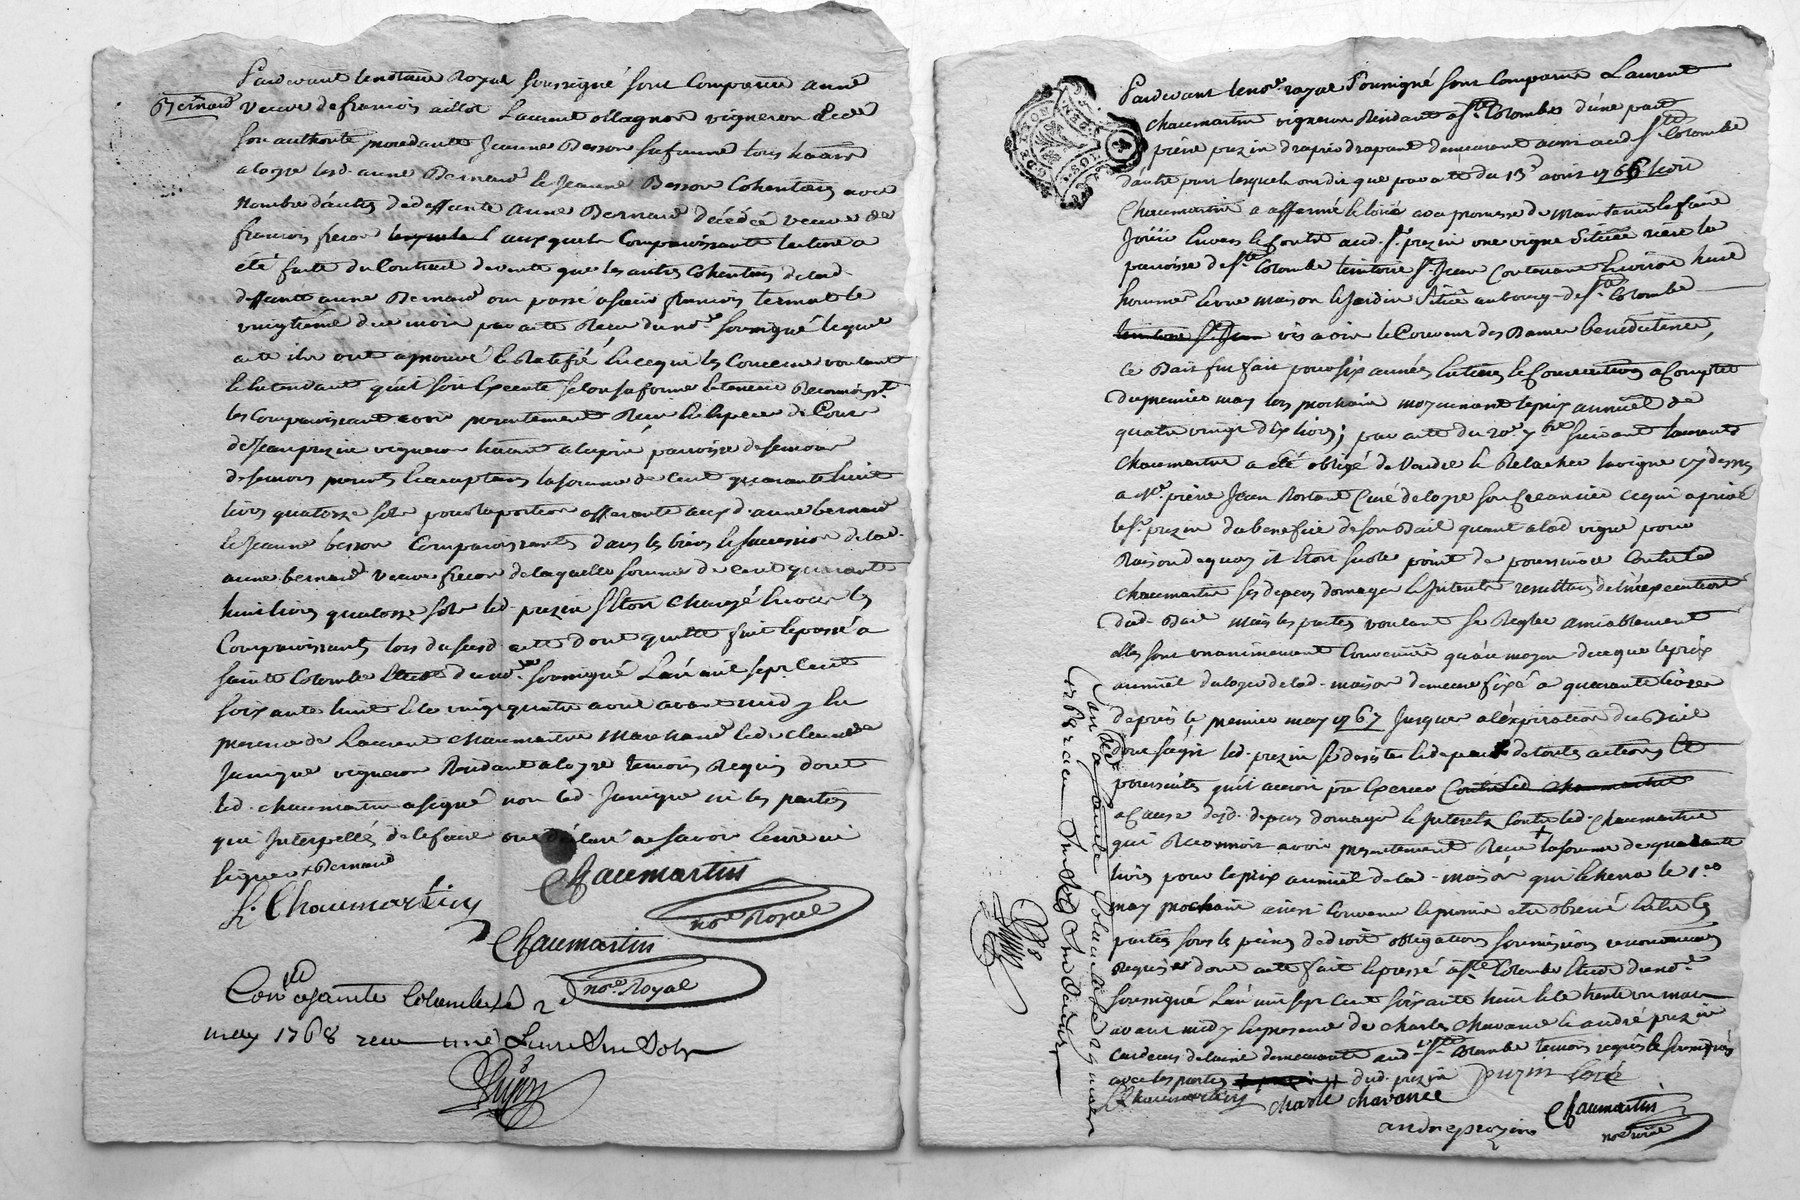 Pardevant le notaire Royal soussigné sont Comparus anne
Bernard veuve de francois aillot Laurent ollagnon vigneron & de
son authorité procedante Jeanne Besson sa femme tous habits
a loyre lesd. anne Bernard & Jeanne Besson Cohentieres avec
nombre d'autres de deffunte anne Bernard décédée veuve de
francois freron auxquels Comparoissants lecture a
été faite du Contrat de vente que les autres Cohentiers de lad.
deffunte anne Bernard ont passé a sieur francois termat le
vingtième du mois par acte Recu du no.re soussigné lequel
acte ils ont aprouvé & Ratifié en ce qui les Concerne voulant
& entendant qu'il soit Executé selon sa forme & teneur Reconnoiss.t
les Comparoissants avoir presentement Recu en Especes de Cours
de Jean prezin vigneron habitant a parroisse de semons
presents & acceptants la somme de Cent quarante huit
livres quatorze sols pour la portion afferante auxd. anne bernard
& Jeanne besson Comparoissants dans les biens & succession de lad.
anne bernard veuve freron de laquelle somme de cent quarante
huit livres quatorze sols led. prezin s'etoit chargé envers les
Comparoissants lors du susd. acte dont quitte fait & passé a
sainte Colombe Etude du no.re soussigné L'an mil sept Cent
soixante huit & le vingt quatre avril avant midy en
presence de Laurent chaumartin Marchand & de Claude
Junique vigneron Residant a loyre temoins Requis dont
led. chaumartin a signé non led. Junique ni les parties
qui Interpellés de le faire ont déclaré ne savoir écrire ni
signer + Bernard
L. Chaumartin
Chaumartin
no.re Royal
Chaumartin
no.re Royal
Con.lé a sainte Colombe le 2
may 1768 recu une Livre
Pardevant le no.re royal soussigné sont Comparus Laurent
chaumartin vigneron Residant a s.te Colombe d'une part
& pierre prezin drapier drapant demeurant aussi aud s.te Colombe
d'autre part lesquels ont dit que par acte du 13 avril 1766 led.
Chaumartin a affermé avec promesse de maintenir & faire
Jouir Envers & Contre aud. s.r prezin une vigne située riere la
parroisse de s.te Colombe territoire s.t Jean Contenant Environ huit
hommes & une maison & jardin situé au bourg de s.te Colombe
territoire s.t Jean vis a vis le Couvent des Dames benedictines,
Ce Bail fut fait pour six années Entieres & Consecutives a Compter
du premier may lors prochain moyennant le prix annuel de
quatre vingt dix livres; par acte du 20.e 7.bre suivant laurent
Chaumartin a été obligé de Vendre & Relacher la vigne cy dessus
a M.re pierre Jean Rostant Curé de loyre son Creancier ce qui a privé
le s.r prezin du benefice de son Bail quant a lad vigne pour
Raison de quoy il etoit sur le point de poursuivre Contre led
chaumartin ses depens domages & Interets resultants de l'inexecution
dud. Bail mais les parties voulant se Regler amiablement
elles sont unanimement Convenues qu'au moyen de ce que le prix
annuel du loyer de lad. maison demeure fixé a quarante livres
depuis le premier may 1767 Jusques a l'expiration du Bail
dont s'agit led. prezin se desiste & depart de toutes actions &
poursuites qu'il auroit pu Exercer Contre led chaumartin
a Cause desd. depens domages & Interets Contre led. chaumartin
qui Reconnoit avoir presentement Recu + la somme de quarante
livres pour le prix annuel de lad. maison qui Echerra le 1.er
may prochain ainsi Convenu & promis etre observé Entre les
parties sous les peines de droit obligations soumissions renonciations
Requises dont acte fait & passé a s.te Colombe Etude du no.re
soussigné L'an mil sept cent soixante huit & le trente un mars
avant midy En presence de Charles Chavance & andré prezin
Cardeurs de laine demeurants aud s.te Colombe temoins requis & soussignés
avec les parties + dud. prezin
prezin
L Chaumartin
charle chavance
Chaumartin
andre prozin
no.re royal
Con.lé a sainte Colombe le
1768 recu